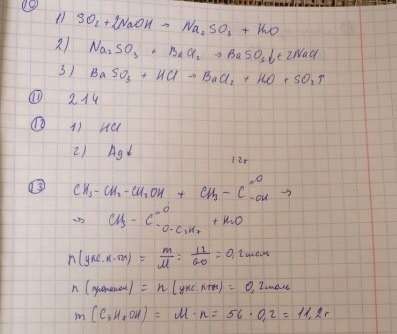 10
1) SO₂ + 2NaOH → Na₂SO₃ + H₂O
2) Na₂SO₃ + BaCl₂ → BaSO₃↓ + 2NaCl
3) BaSO₃ + HCl → BaCl₂ + H₂O + SO₂↑
11 214
12 1) HCl
2) Ag↓
12г
13 CH₃-CH₂-CH₂OH + CH₃-C=O-OH →
→ CH₃-C=O-O-C₃H₇ + H₂O
n(укс.к-ты) = m/M = 12/60 = 0,2моль
n(пропанол) = n(укс.к-ты) = 0,2моль
m(C₃H₇OH) = M·n = 56·0,2 = 11,2г